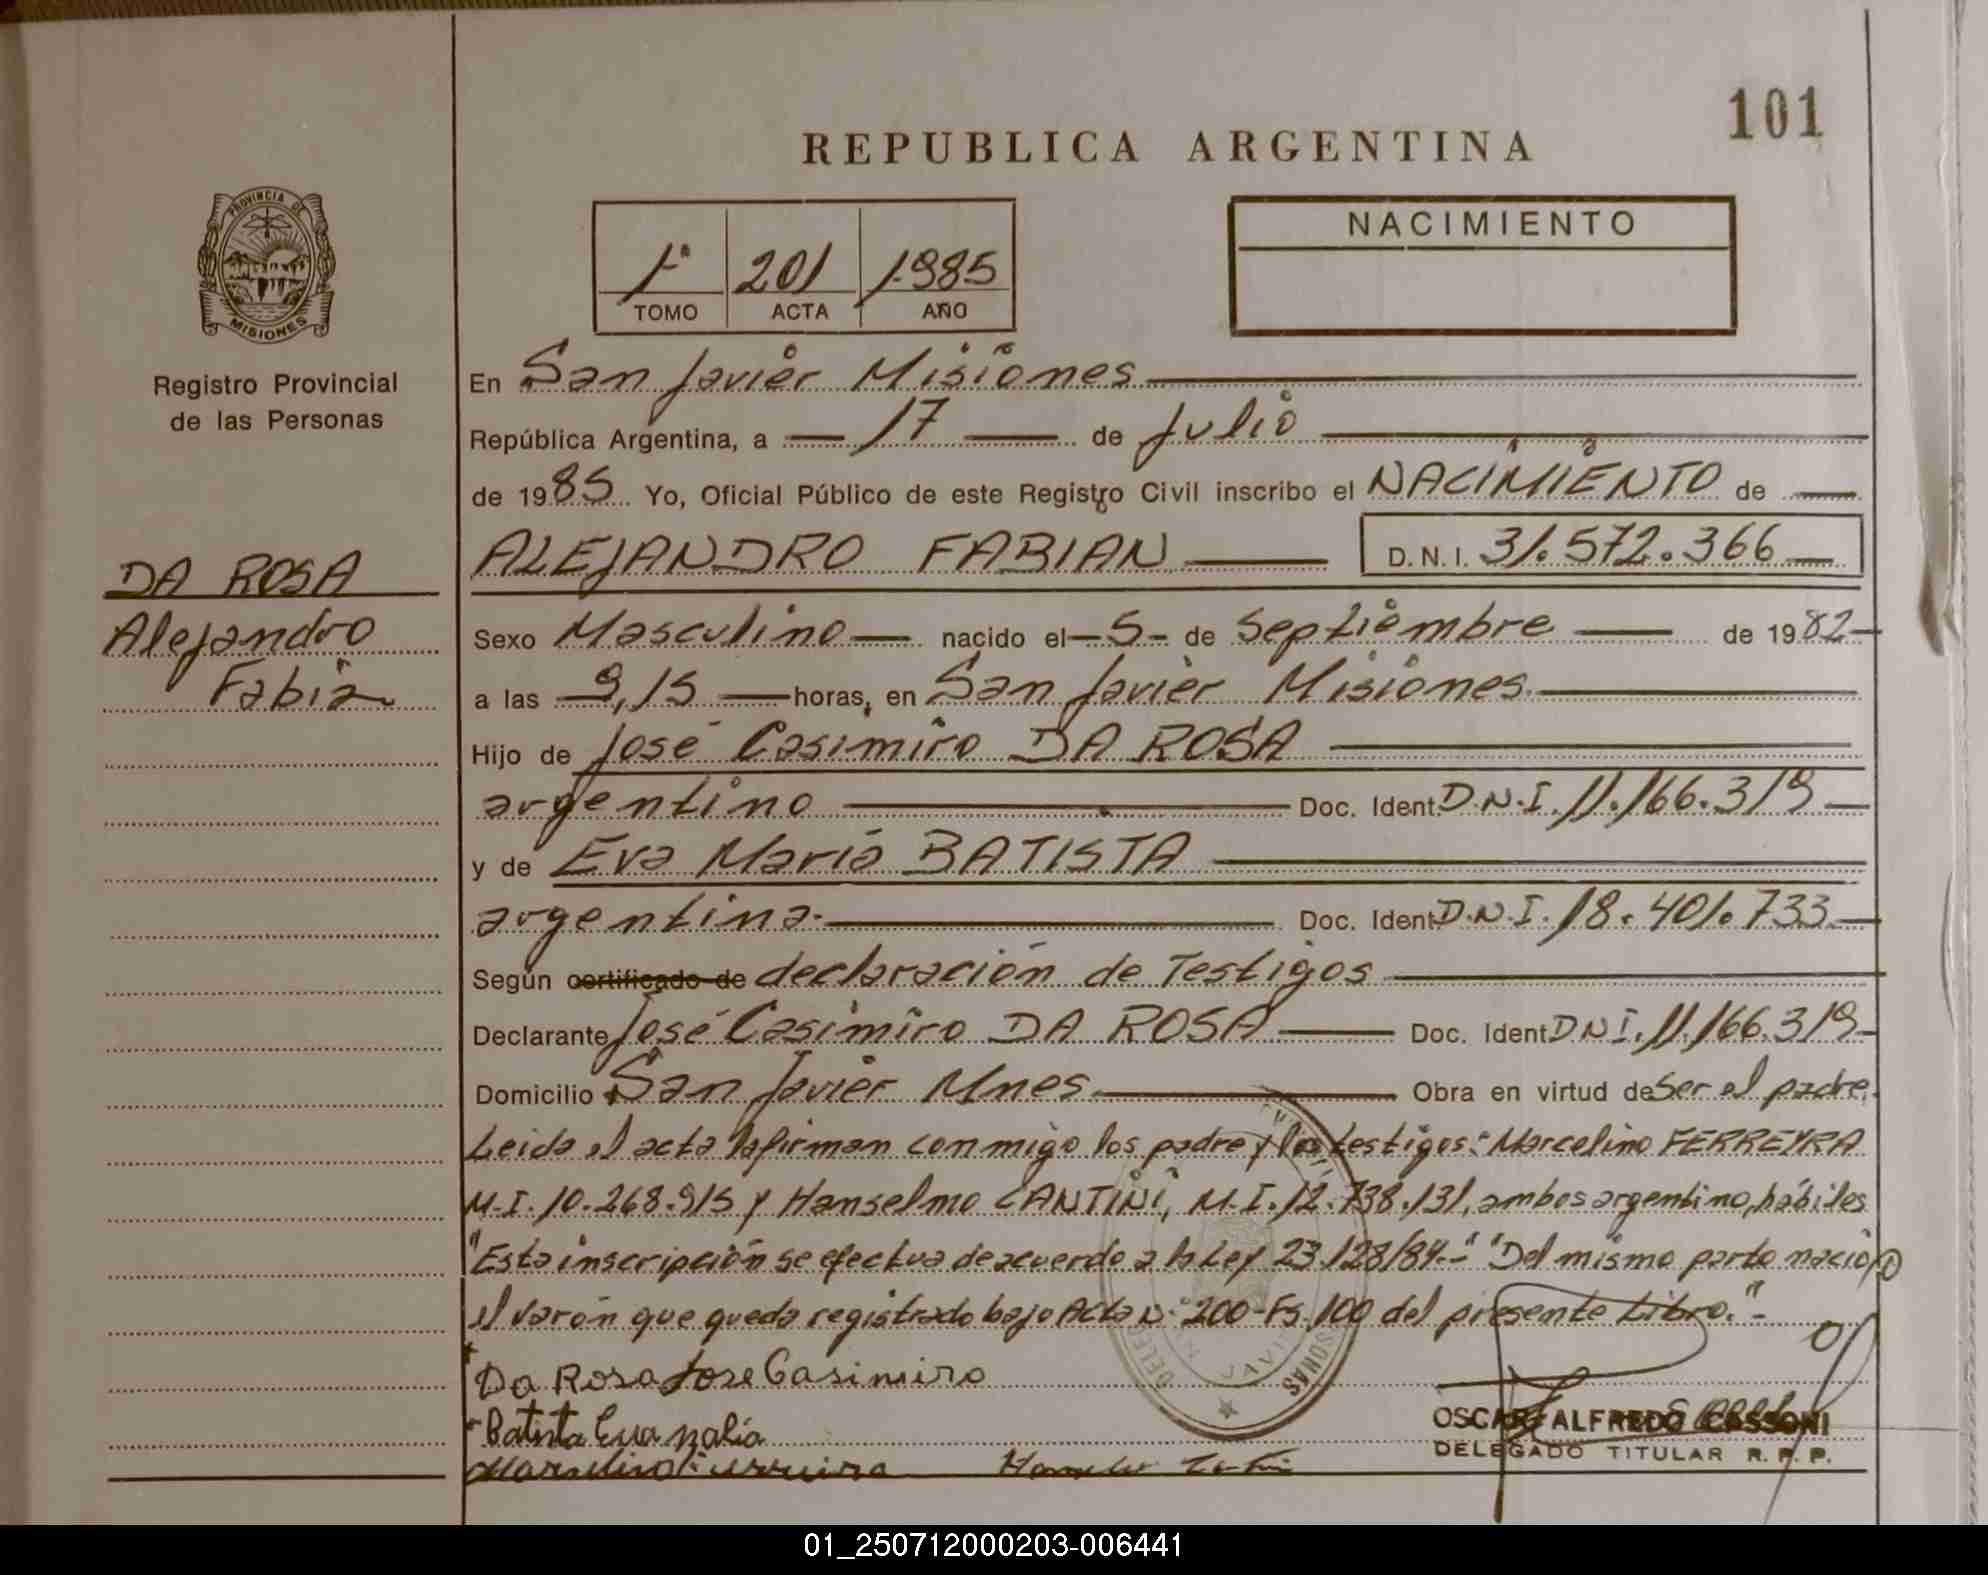 101
REPUBLICA ARGENTINA
PROVINCIA DE
MISIONES
Registro Provincial
de las Personas
1° 201 1985
TOMO ACTA AÑO
NACIMIENTO
En San Javier Misiones
República Argentina, a 17 de Julio
de 1985 Yo, Oficial Público de este Registro Civil inscribo el NACIMIENTO de
ALEJANDRO FABIAN D.N.I. 31.572.366
DA ROSA
Alejandro
Fabia
Sexo Masculino nacido el 5 de Septiembre de 1982
a las 9,15 horas, en San Javier Misiones
Hijo de José Casimiro DA ROSA
argentino Doc. Ident. D.N.I. 11.166.319
y de Eva María BATISTA
argentina Doc. Ident. D.N.I. 18.401.733
Según certificado de declaración de Testigos
Declarante José Casimiro DA ROSA Doc. Ident. DNI. 11.166.319
Domicilio San Javier Mnes Obra en virtud de Ser el padre.
Leida el acta la firman conmigo los padre y los testigos: Marcelino FERREYRA
M.I. 10.268.915 y Hanselmo CANTINI, M.I. 12.738.131, ambos argentino, hábiles
"Esta inscripción se efectua de acuerdo a la Ley 23.128/84.-" "Del mismo parto nació
el varón que queda registrado bajo Acta N° 200-Fs. 100 del presente Libro."-
Da Rosa Jose Casimiro
Batista Eva
OSCAR ALFREDO CASSONI
DELEGADO TITULAR R. P. P.
01_250712000203-006441